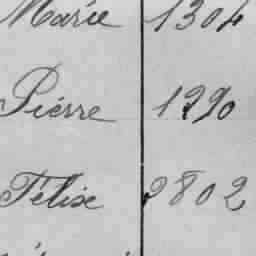 Marie 1304
Piérre 1290
Félix 2802